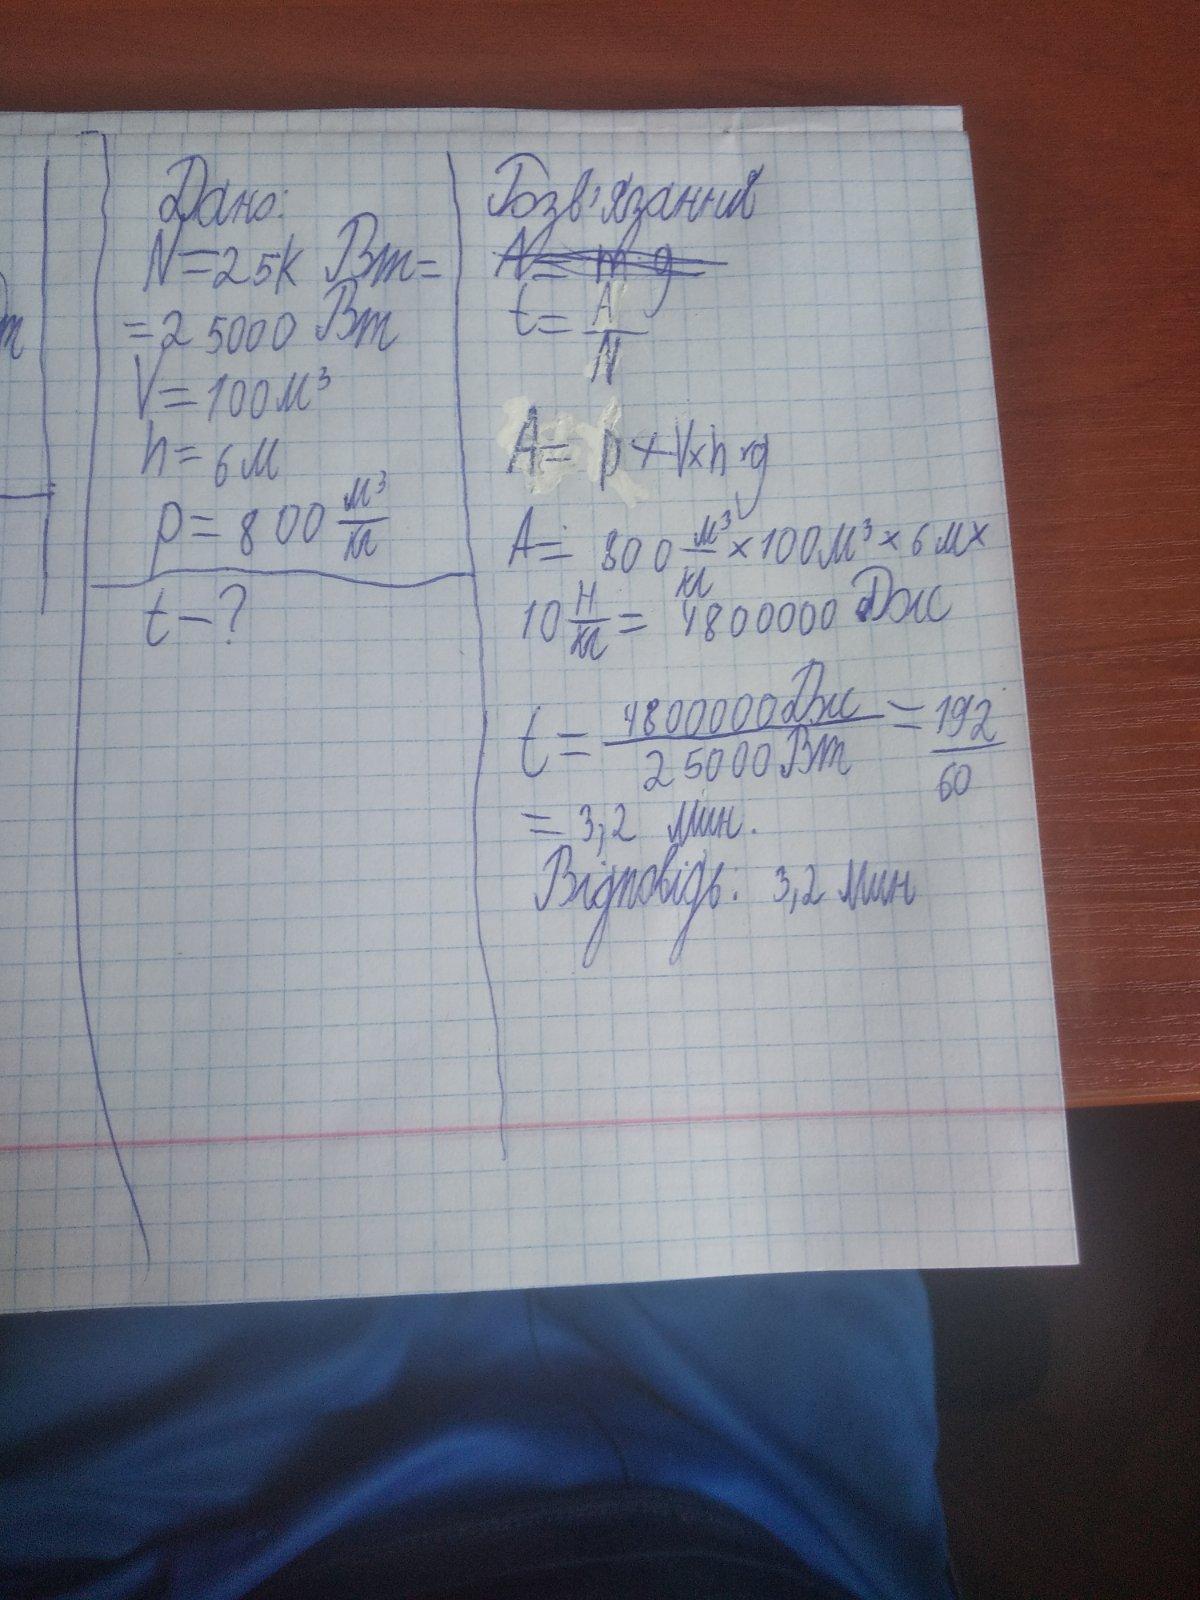 Дано:
N=25к Вт=
=25000 Вт
V=100м³
h=6м
p=800 м³/кг
t-?
Розв'язання
N=m·g
t= A/N
A= p×V×h×g
A= 800 м³/кг ×100м³×6м×
10 Н/кг = 4800000 Дж
t= 4800000Дж/25000Вт = 192/60
= 3,2 мин.
Відповідь: 3,2 мин
т